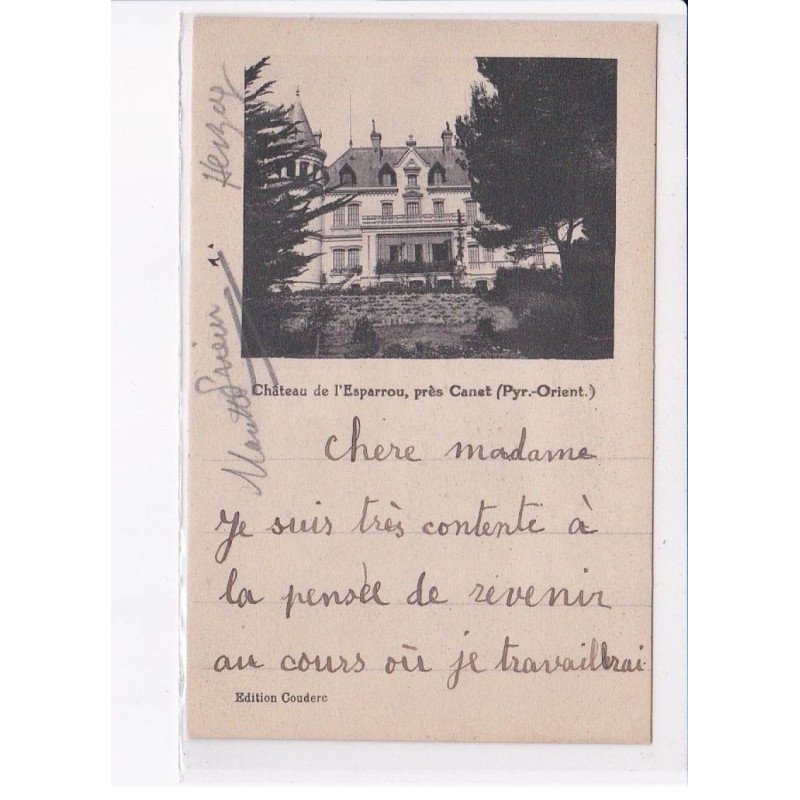 Château de l'Esparrou, près Canet (Pyr.-Orient.)
chere madame
je suis très contente à
la pensée de revenir
au cours où je travaillrai
Edition Couderc